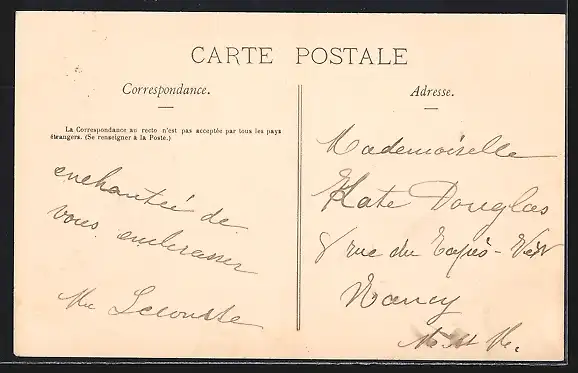 CARTE POSTALE
Correspondance.
La Correspondance au recto n'est pas acceptée par tous les pays
étrangers. (Se renseigner à la Poste.)
enchantée de
vous embrasser
Adresse.
Mademoiselle
Kate Douglas
8 rue du Tapis-Vert
Nancy